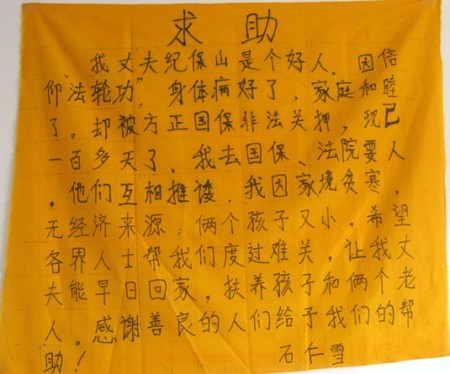 求助
我丈夫纪保山是个好人.因信
仰"法轮功",身体病好了,家庭和睦
了.却被方正国保非法关押,现已
一百多天了,我去国保、法院要人
.他们互相推诿,我因家境贫寒,
无经济来源,俩个孩子又小,希望
各界人士帮我们度过难关,让我丈
夫能早日回家,扶养孩子和两个老
人。感谢善良的人们给予我们的帮
助!
石仁雪